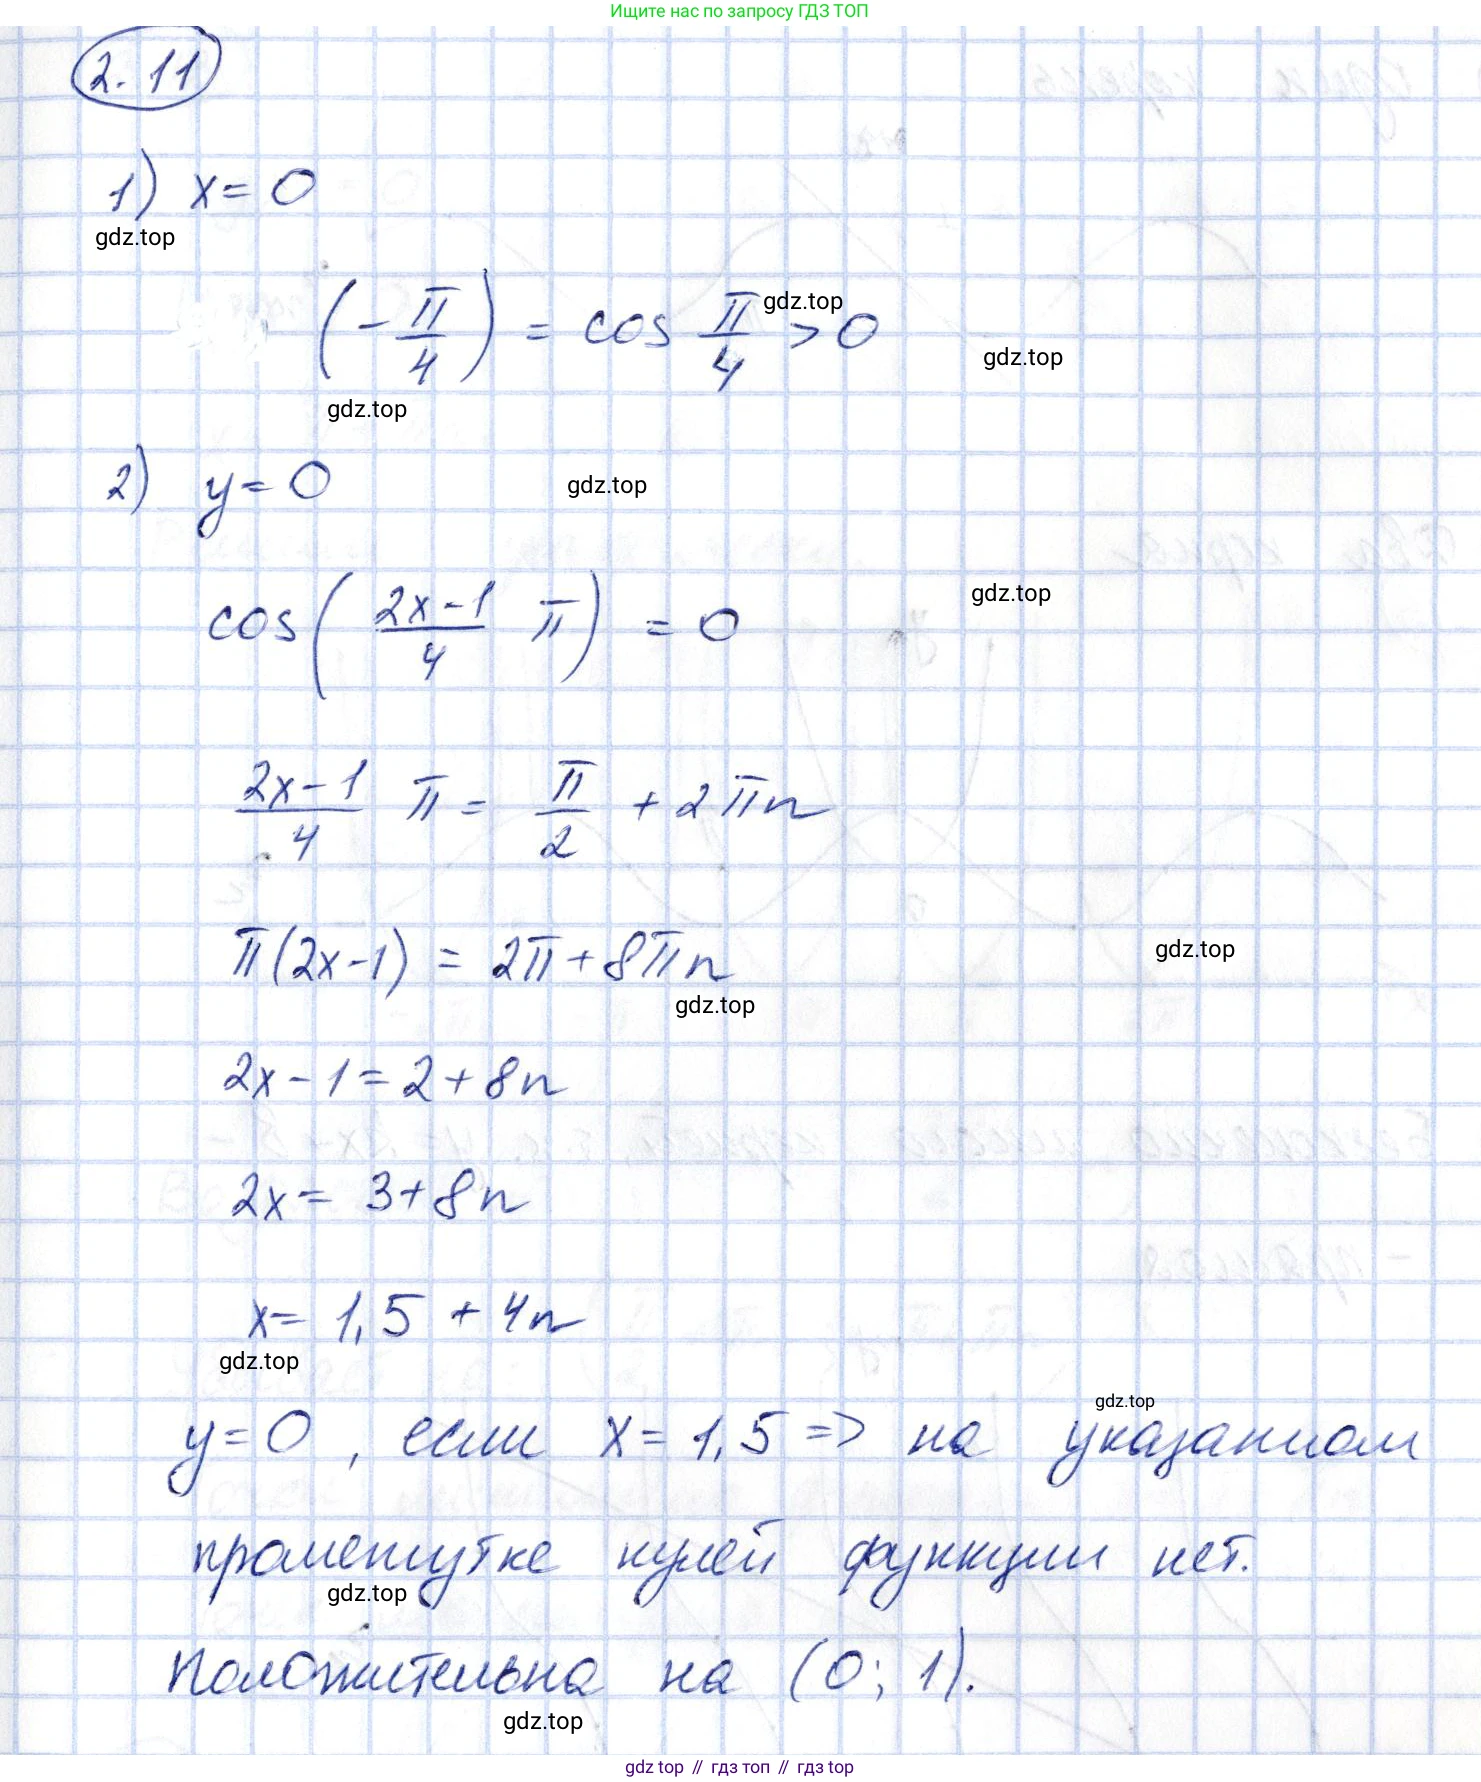 Ищите нас по запросу ГДЗ ТОП
2.11
1) x = 0
gdz.top
(-π/4) = cos π/4 > 0
gdz.top
gdz.top
gdz.top
2) y = 0
gdz.top
cos(2x-1/4 π) = 0
gdz.top
2x-1/4 π = π/2 + 2πn
π(2x-1) = 2π + 8πn
gdz.top
gdz.top
2x - 1 = 2 + 8n
2x = 3 + 8n
x = 1,5 + 4n
gdz.top
gdz.top
y = 0, если x = 1,5 => на указанном
промежутке нулей функции нет.
gdz.top
Положительна на (0; 1).
gdz.top
gdz top // гдз топ // гдз top